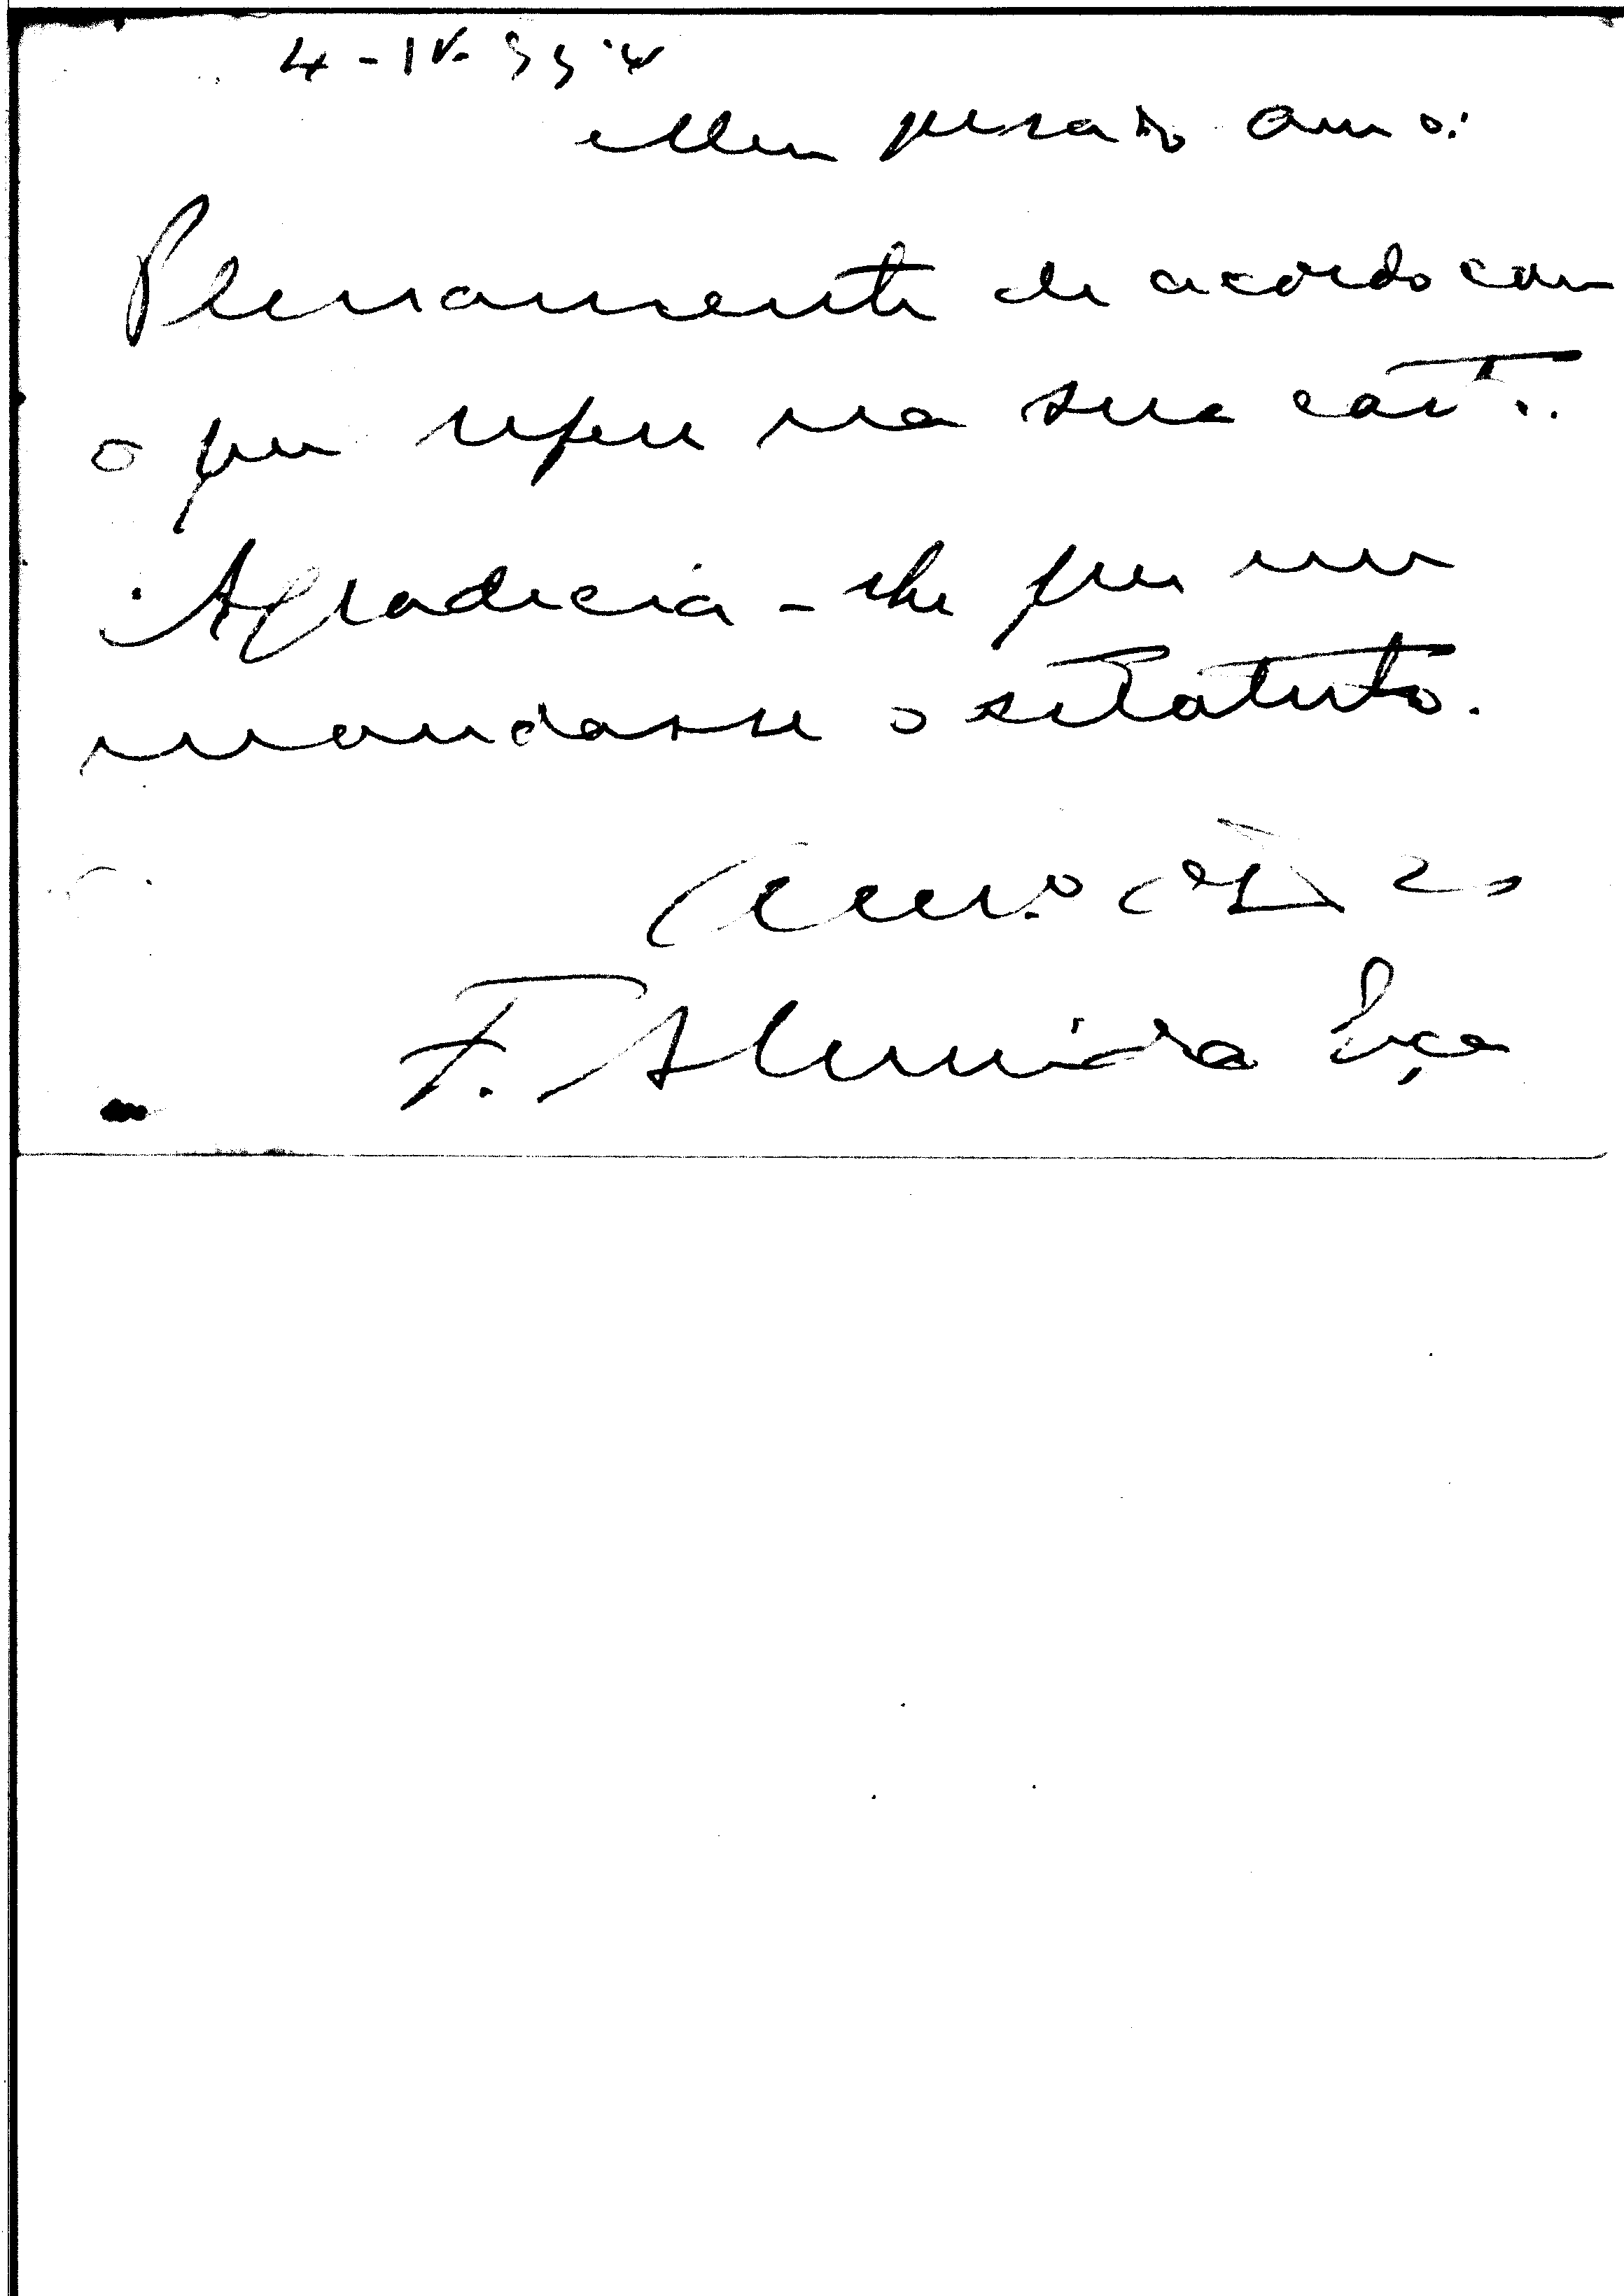 4-IV-
Meu prezado am.o:
Plenamente de acordo com
o que refere na sua carta.
Agradecia-lhe que me
mandasse o estatuto.
F. Almeida